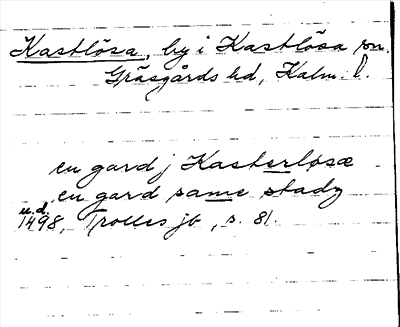 Kastlösa, by i Kastlösa sn.
Gräsgårds hd, Kalm. l.
en gard j Kasterløsæ
en gard same stadz
u.d.
1498, Trolles jb, s. 81.